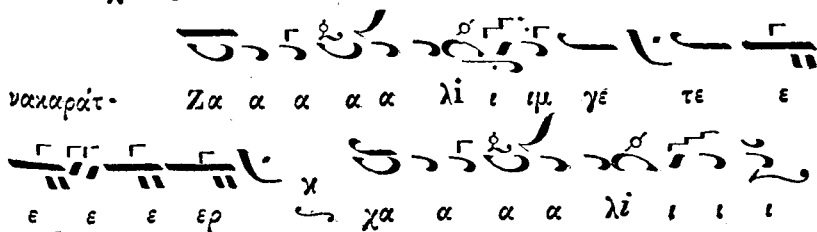 νακαράτ· Ζα α α α α λὶ ι ιμ γέ τε ε
ε ε ε ερ χα α α α λὶ ι ι ι